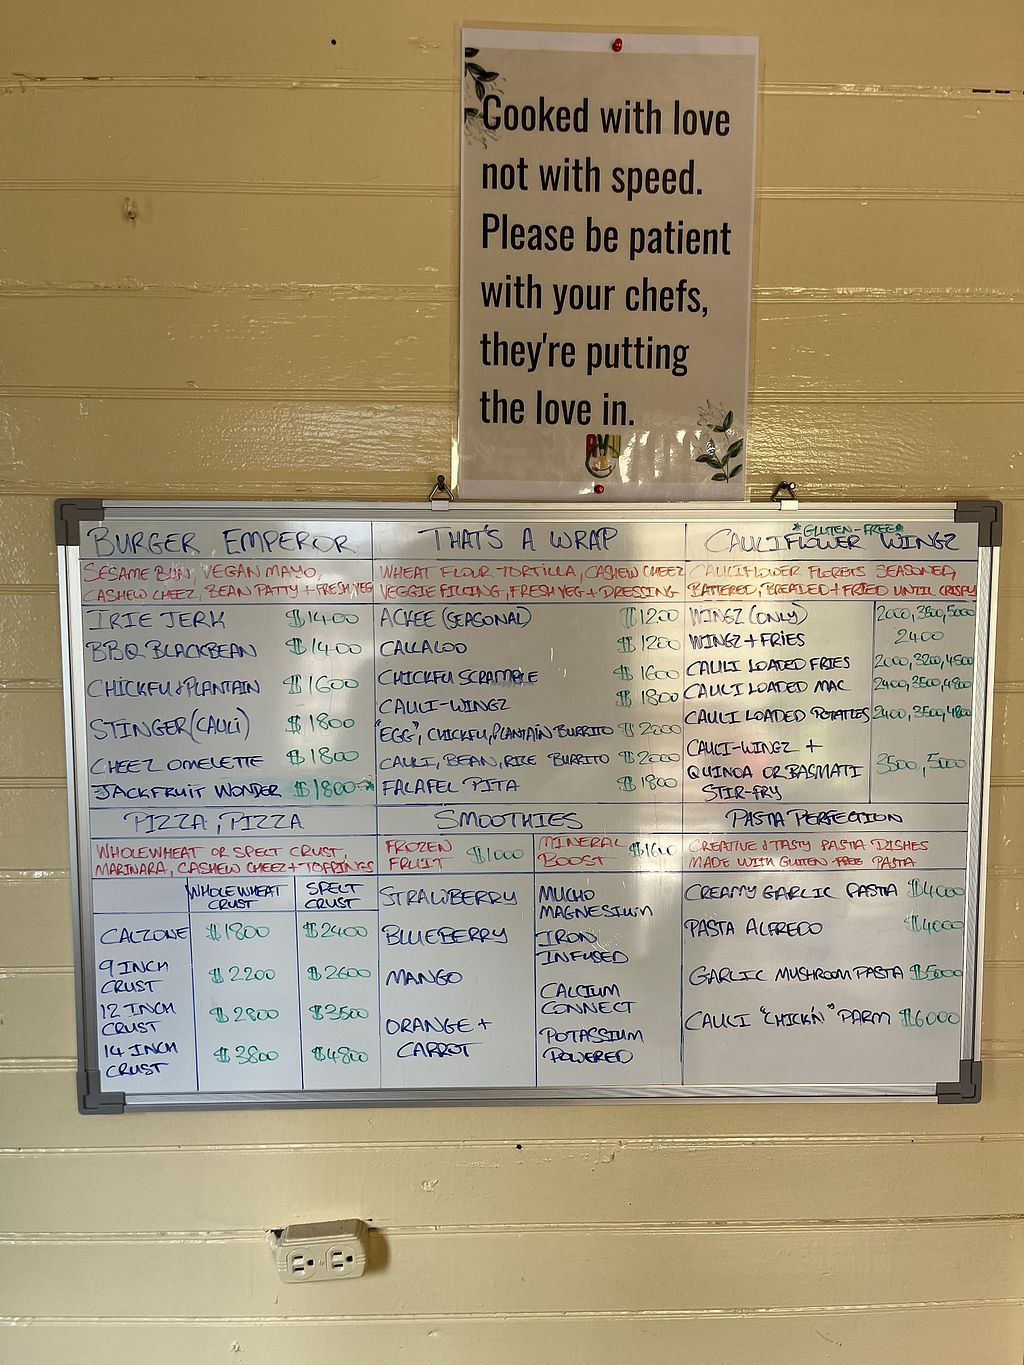 Cooked with love
not with speed.
Please be patient
with your chefs,
they're putting
the love in.
BURGER EMPEROR
SESAME BUN, VEGAN MAYO,
CASHEW CHEEZ, BEAN PATTY + FRESH VEG
IRIE JERK $1400
BBQ BLACKBEAN $1400
CHICKFU & PLANTAIN $1600
STINGER (CAULI) $1800
CHEEZ OMELETTE $1800
JACKFRUIT WONDER $1800
THAT'S A WRAP
WHEAT FLOUR TORTILLA, CASHEW CHEEZ
VEGGIE FILLING, FRESH VEG + DRESSING
ACKEE (SEASONAL) $1200
CALLALOO $1200
CHICKFU SCRAMBLE $1600
CAULI-WINGZ $1800
"EGG", CHICKFU, PLANTAIN BURRITO $2000
CAULI, BEAN, RICE BURRITO $2000
FALAFEL PITA $1800
*GLUTEN-FREE*
CAULIFLOWER WINGZ
CAULIFLOWER FLORETS SEASONED,
BATTERED, BREADED + FRIED UNTIL CRISPY
WINGZ (ONLY) 2000, 3500, 5000
WINGZ + FRIES 2400
CAULI LOADED FRIES 2000, 3200, 4500
CAULI LOADED MAC 2400, 3500, 4800
CAULI LOADED POTATOES 2400, 3500, 4800
CAULI-WINGZ +
QUINOA OR BASMATI 3500, 5000
STIR-FRY
PIZZA, PIZZA
WHOLEWHEAT OR SPELT CRUST,
MARINARA, CASHEW CHEEZ + TOPPINGS
WHOLEWHEAT CRUST SPELT CRUST
CALZONE $1800 $2400
9 INCH CRUST $2200 $2600
12 INCH CRUST $2800 $3500
14 INCH CRUST $3800 $4800
SMOOTHIES
FROZEN FRUIT $1000
STRAWBERRY
BLUEBERRY
MANGO
ORANGE +
CARROT
MINERAL BOOST $1600
MUCHO
MAGNESIUM
IRON
INFUSED
CALCIUM
CONNECT
POTASSIUM
POWERED
PASTA PERFECTION
CREATIVE & TASTY PASTA DISHES
MADE WITH GLUTEN-FREE PASTA
CREAMY GARLIC PASTA $4000
PASTA ALFREDO $4000
GARLIC MUSHROOM PASTA $5000
CAULI "CHICK'N" PARM $6000